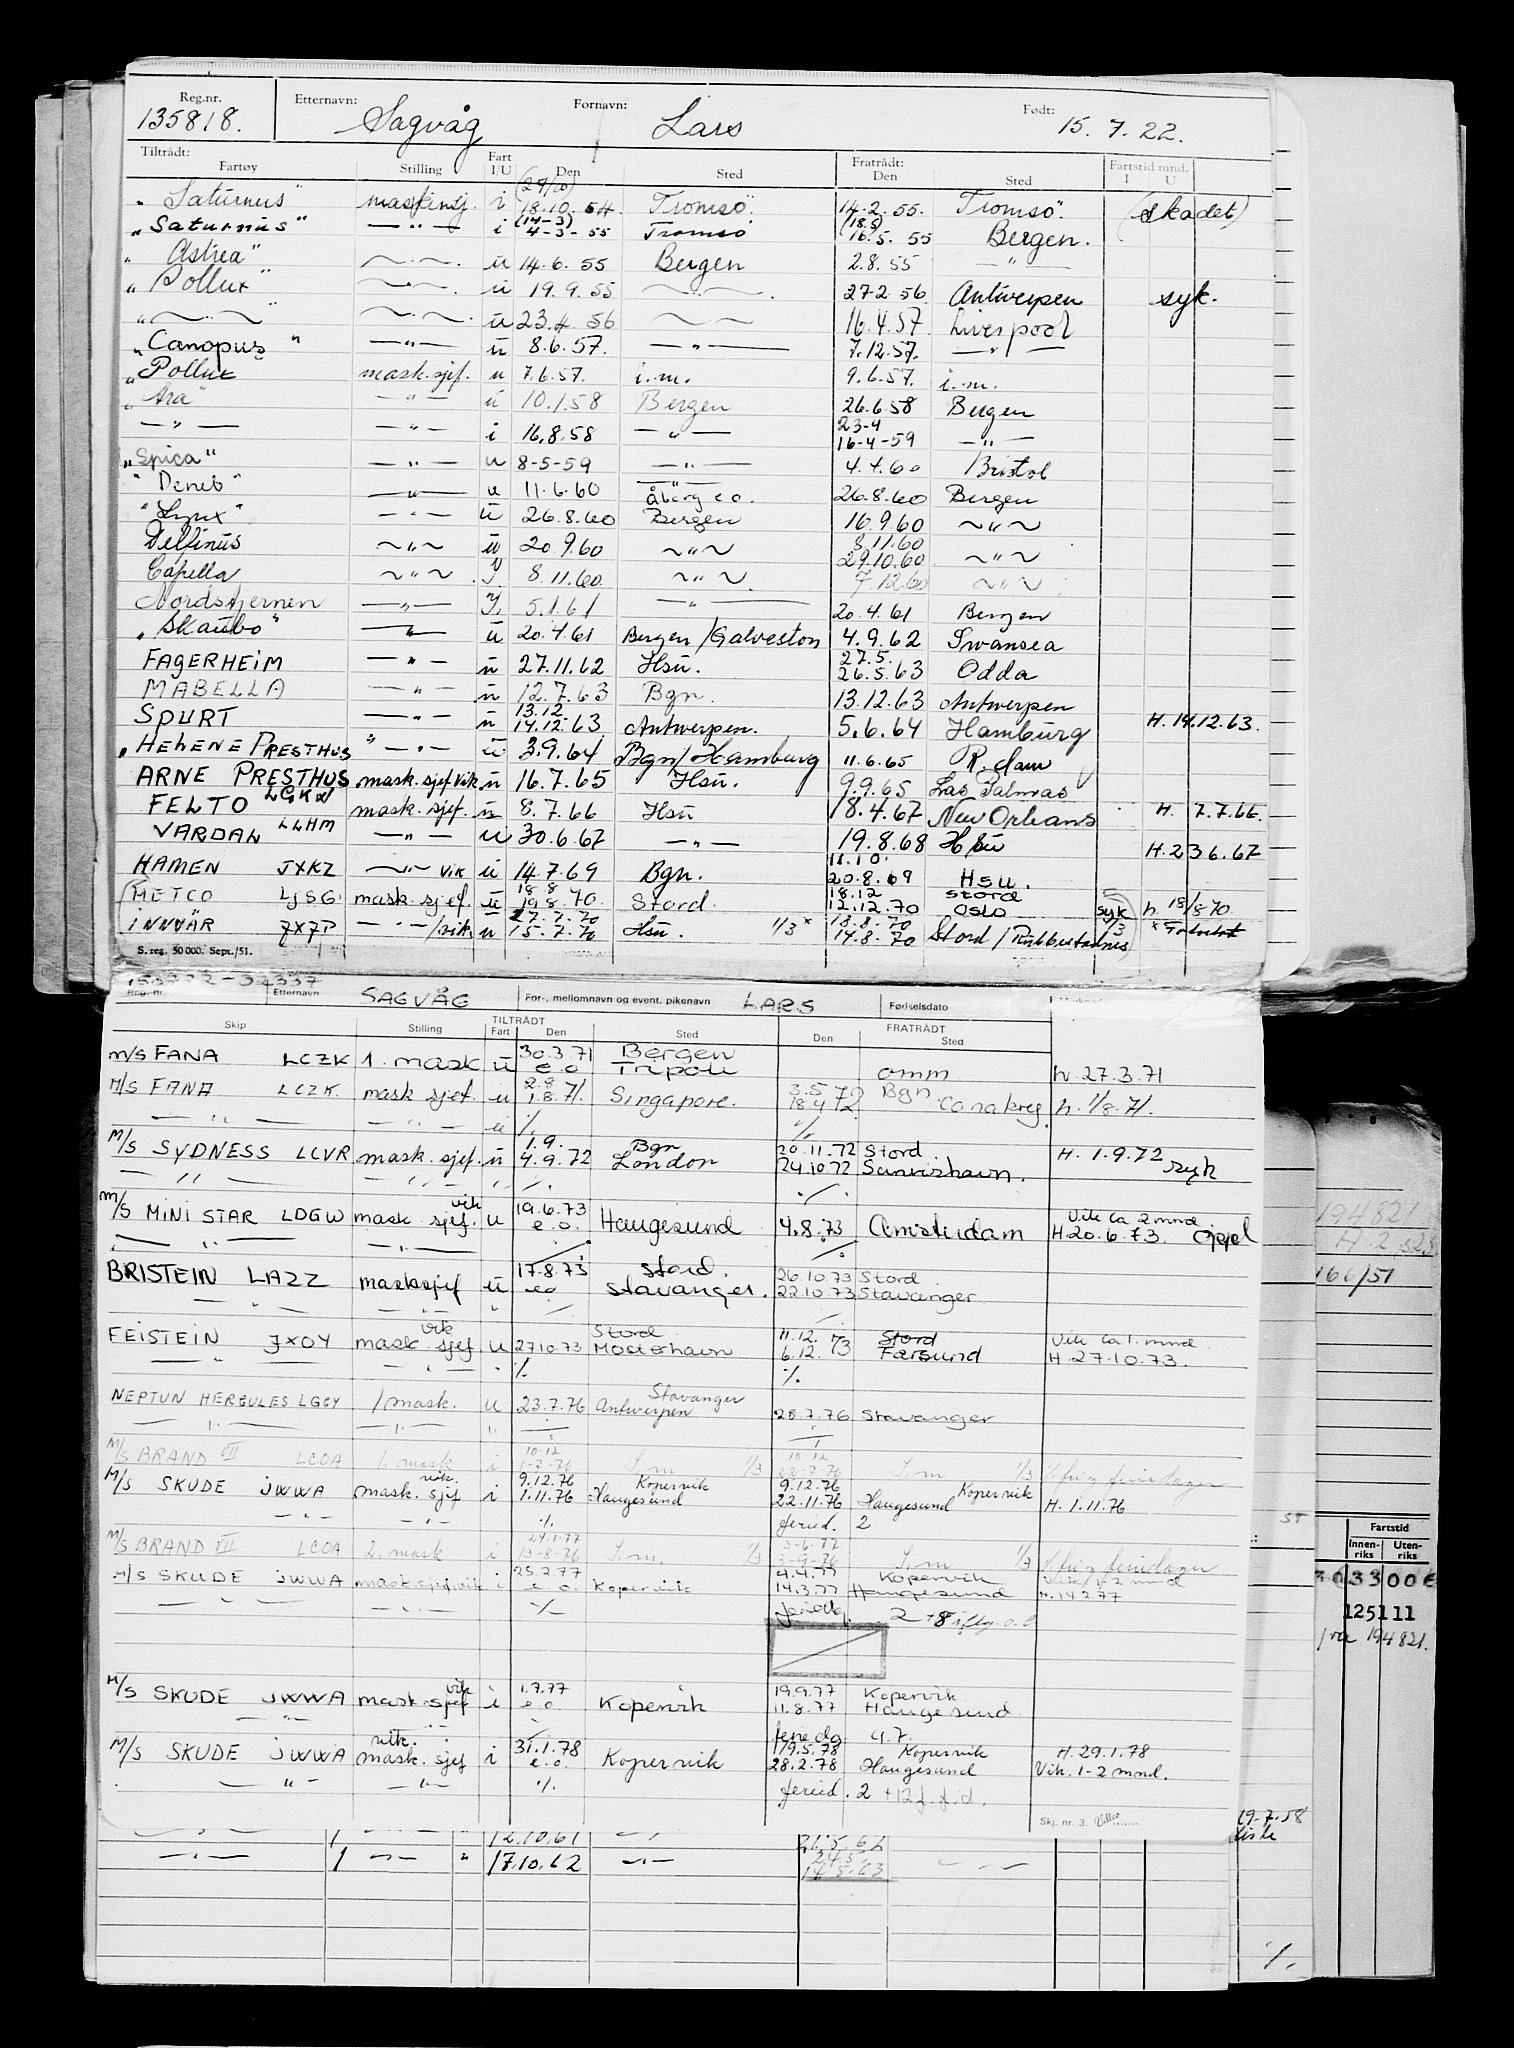 Reg.nr. Etternavn: Fornavn: Født:
135818. Sagvåg Lars 15. 7. 22.
Tiltrådt: Fratrådt: Fartstid mnd.
Fartøy Stilling Fart I/U Den Sted Den Sted I U
"Saturnus" i (29/10) 18.10.54. Tromsö. 14-2.55. Tromsö. (skadet)
"Saturnus" — " — i (14-3) 4-3-55 Tromsö (18.5) 16.5.55 Bergen.
"Astrea" u 14.6.55 Bergen 2.8.55 — " —
"Pollux" u 19.9.55 27-2.56 Antwerpen syk.
ü 23.4.56 16.4.57. Liverpool
"Canopus" — " — ü 8.6.57. — " — 7.12.57. — " —
"Pollux mask.sjef. u 7.6.57. i.m. 9.6.57. i.m.
"Ara" — " — ü 10.1.58 Bergen 26.6.58 Bergen
— " — — " — i 16.8.58 — " — 23-4 16-4-59 — " —
"Spica" — " — u 8-5-59 — " — 4.4.60 Bristol
"Deneb" — " — u 11.6.60 Åberg e.o. 26.8.60 Bergen
"Lynx" — " — ü 26.8.60 Bergen 16.9.60 ~ " ~
Delfinus ~ " ~ ü 20.9.60 ~ " ~ 8.11.60 29.10.60 ~ " ~
Capella ~ " ~ 8.11.60 ~ " ~ 7.12.60 ~ " ~
Nordstjernen — " — 5.1.61 — " — 20.4.61 Bergen
"Skaubo" — " — ü 20.4.61 Bergen/Galveston 4.9.62 Swansea
FAGERHEIM — " — ü 27.11.62 Hsu. 27.5. 26.5.63 Odda
MABELLA — " — ü 12.7.63 Bgn. 13.12.63 Antwerpen
SPURT — " — ü 13.12. 14.12.63 Antwerpen. 5.6.64 Hamburg H. 14.12.63.
"HELENE PRESTHUS " — " — ü 3.9.64 Bgn/Hamburg 11.6.65 R.dam
ARNE PRESTHUS mask.sjef vik ü 16.7.65 Hsü. 9.9.65 Las Palmas
FELTO mask.sjef. ü 8.7.66 Hsü 18.4.67 New Orleans H. 7.7.66.
VARDAN LLHM — " — u 30.6.67 — " — 19.8.68 Hsü H. 23 6.67
HAMEN JXKZ vik ü 14.7.69 Bgn. 11.10. 20.8.69 Hsu.
METCO LJSG. mask.sjef. ü 18 8 19.8.70. Stord. 18.12 12.12.70 Stord Oslo syk h 18/8 70
INNVÄR JXJP — " —/vik ü 27.7.70 15.7.70 Hsü. 1/3 x 18.8.70 14.8.70 Stord / 1/3
S. reg. 50 000. Sept./51.
Reg. nr. Etternavn SAGVÅG For-, mellomnavn og event. pikenavn LARS Fødselsdato
TILTRÅDT FRATRÅDT
Skip Stilling Fart Den Sted Den Sted
m/s FANA LCZK 1. mask u 30.3.71 e.o Bergen Tripoli omm h. 27.3.71
M/S FANA LCZK. mask sjef. u 2.8 1.8.71. Singapore. 3.5.72 18.4.72 Bgn. Conakry h. 1/8.71.
— " — — " — u ·/. ·/.
M/S SYDNESS LCVR mask. sjef. ü 1.9. 4.9.72 Bgn London 20.11.72 24.10.72 Stord. H. 1.9.72 syk
— " — — " — ·/. ·/.
M/S MINI STAR LDGW mask. sjef. vik u 19.6.73 e.o. Haugesund 4.8.73 Amsterdam Vik ca 2 mnd. H. 20.6.73. Oppl
— " — — " — ·/. ·/.
BRISTEIN LAZZ masksjef u 17.8.73 e.o Stord. Stavanger. 26.10.73 22.10.73 Stord Stavanger
— " — — " — ·/. ·/.
FEISTEIN JXOY mask. sjef vik u 27.10.73 Stord Mosterhavn 11.12. 6.12. 73 Stord Farsund Vik ca 1. mnd H. 27.10.73.
— " — — " — ·/. ·/.
NEPTUN HERCULES LGGY 1 mask. u 23.7.76 Stavanger Antwerpen 28.7.76 Stavanger
— " — — " —
M/S BRAND VII LCOA 1. mask i 10-12 1-2-76 I.m 1/3 10-12 I.m 1/3 feriedager
M/S SKUDE JWWA mask. sjef vik. i 9.12.76 1.11.76 Kopervik Haugesund 9.12.76 22.11.76 Kopervik Haugesund H. 1.11.76
— " — — " — ·/. feried. 2
M/S BRAND VII LCOA 2. mask i 24.1.77 13-8-76 I.m. 1/3 3-6-77 3-9-76 I.m 1/3 feriedager
M/S SKUDE JWWA mask.sjef vik i 25.2.77 e.o. Kopervik 4.4.77 14.3.77 Kopervik Haugesund 1-2 mnd H. 14.2.77
— " — — " — ·/.
M/S SKUDE JWWA mask. sjef vik i 1.7.77 e.o. Kopervik 19.9.77 11.8.77 Kopervik Haugesund
— " — feriedg 47.
M/S SKUDE JWWA vik. mask. sjef i 31.1.78 e.o. Kopervik 19.5.78 28.2.78 Kopervik Haugesund H. 29.1.78 Vik. 1-2 mnd.
— " — — " — ·/. feried. 2 +12 f.f.d.
Skj. nr. 3.
12.10.61 21.5.62
— " — 1 — " — " 17.10.62 — " — 24.5. 14.5.63 — " —
19.7.58 liste
194821
166/51
ST
Fartstid
Innenriks Utenriks
3300
125111
fra 194821.
·/.